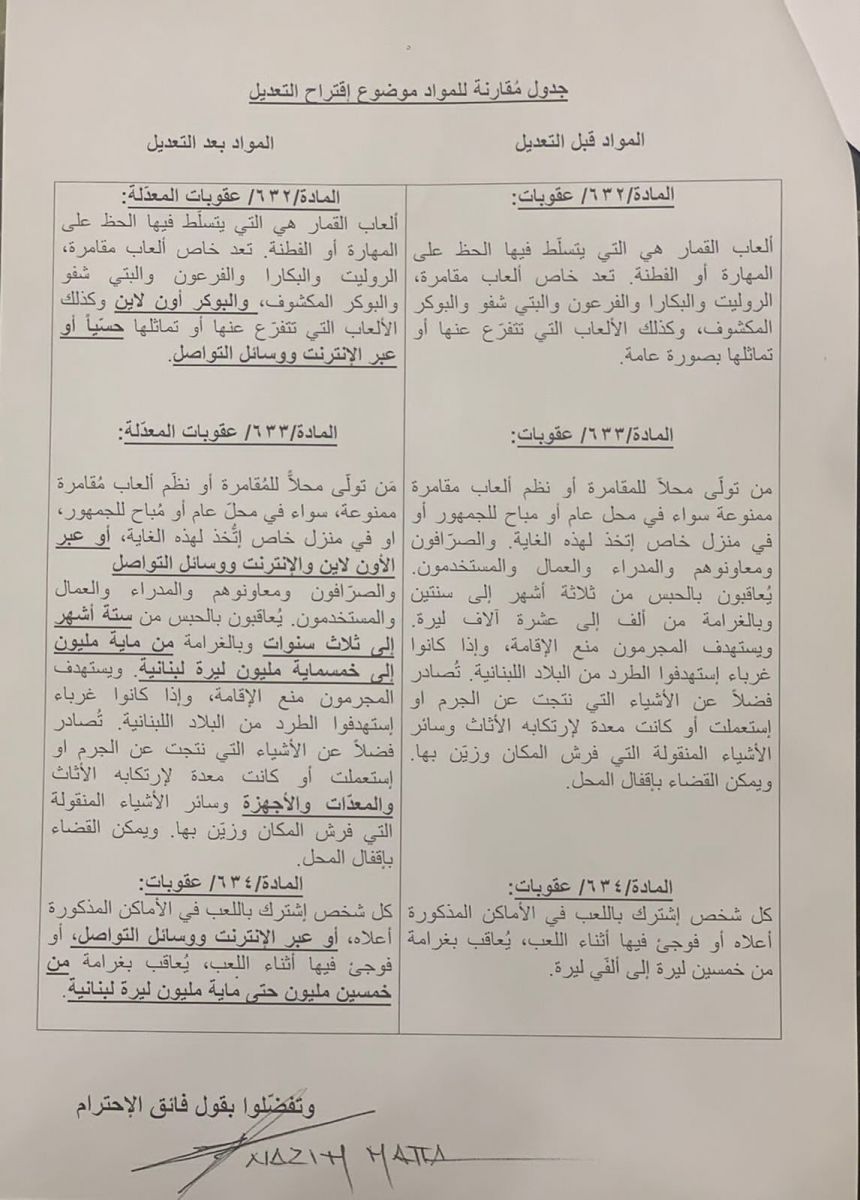 جدول مُقارنة للمواد موضوع إقتراح التعديل
المواد قبل التعديل
المواد بعد التعديل
المادة/٦٣٢/ عقوبات:
ألعاب القمار هي التي يتسلّط فيها الحظ على
المهارة أو الفطنة. تعد خاص ألعاب مقامرة،
الروليت والبكارا والفرعون والبتي شفو والبوكر
المكشوف، وكذلك الألعاب التي تتفرّع عنها أو
تماثلها بصورة عامة.
المادة/٦٣٣/ عقوبات:
من تولّى محلاً للمقامرة أو نظم ألعاب مقامرة
ممنوعة سواء في محل عام أو مباح للجمهور أو
في منزل خاص إتخذ لهذه الغاية. والصرّافون
ومعاونوهم والمدراء والعمال والمستخدمون.
يُعاقبون بالحبس من ثلاثة أشهر إلى سنتين
وبالغرامة من ألف إلى عشرة آلاف ليرة.
ويستهدف المجرمون منع الإقامة، وإذا كانوا
غرباء إستهدفوا الطرد من البلاد اللبنانية. تُصادر
فضلاً عن الأشياء التي نتجت عن الجرم او
إستعملت أو كانت معدة لإرتكابه الأثاث وسائر
الأشياء المنقولة التي فرش المكان وزيّن بها.
ويمكن القضاء بإقفال المحل.
المادة/٦٣٤/ عقوبات:
كل شخص إشترك باللعب في الأماكن المذكورة
أعلاه أو فوجئ فيها أثناء اللعب، يُعاقب بغرامة
من خمسين ليرة إلى ألفَي ليرة.
المادة/٦٣٢/ عقوبات المعدّلة:
ألعاب القمار هي التي يتسلّط فيها الحظ على
المهارة أو الفطنة. تعد خاص ألعاب مقامرة،
الروليت والبكارا والفرعون والبتي شفو
والبوكر المكشوف، والبوكر أون لاين وكذلك
الألعاب التي تتفرّع عنها أو تماثلها حسّياً أو
عبر الإنترنت ووسائل التواصل.
المادة/٦٣٣/ عقوبات المعدّلة:
مَن تولّى محلاًّ للمُقامرة أو نظّم ألعاب مُقامرة
ممنوعة، سواء في محلّ عام أو مُباح للجمهور،
او في منزل خاص إتُّخذ لهذه الغاية، أو عبر
الأون لاين والإنترنت ووسائل التواصل
والصرّافون ومعاونوهم والمدراء والعمال
والمستخدمون. يُعاقبون بالحبس من ستة أشهر
إلى ثلاث سنوات وبالغرامة من ماية مليون
إلى خمسماية مليون ليرة لبنانية. ويستهدف
المجرمون منع الإقامة، وإذا كانوا غرباء
إستهدفوا الطرد من البلاد اللبنانية. تُصادر
فضلاً عن الأشياء التي نتجت عن الجرم او
إستعملت أو كانت معدة لإرتكابه الأثاث
والمعدّات والأجهزة وسائر الأشياء المنقولة
التي فرش المكان وزيّن بها. ويمكن القضاء
بإقفال المحل.
المادة/٦٣٤/ عقوبات:
كل شخص إشترك باللعب في الأماكن المذكورة
أعلاه، أو عبر الإنترنت ووسائل التواصل، أو
فوجئ فيها أثناء اللعب، يُعاقب بغرامة من
خمسين مليون حتى ماية مليون ليرة لبنانية.
وتفضّلوا بقول فائق الإحترام